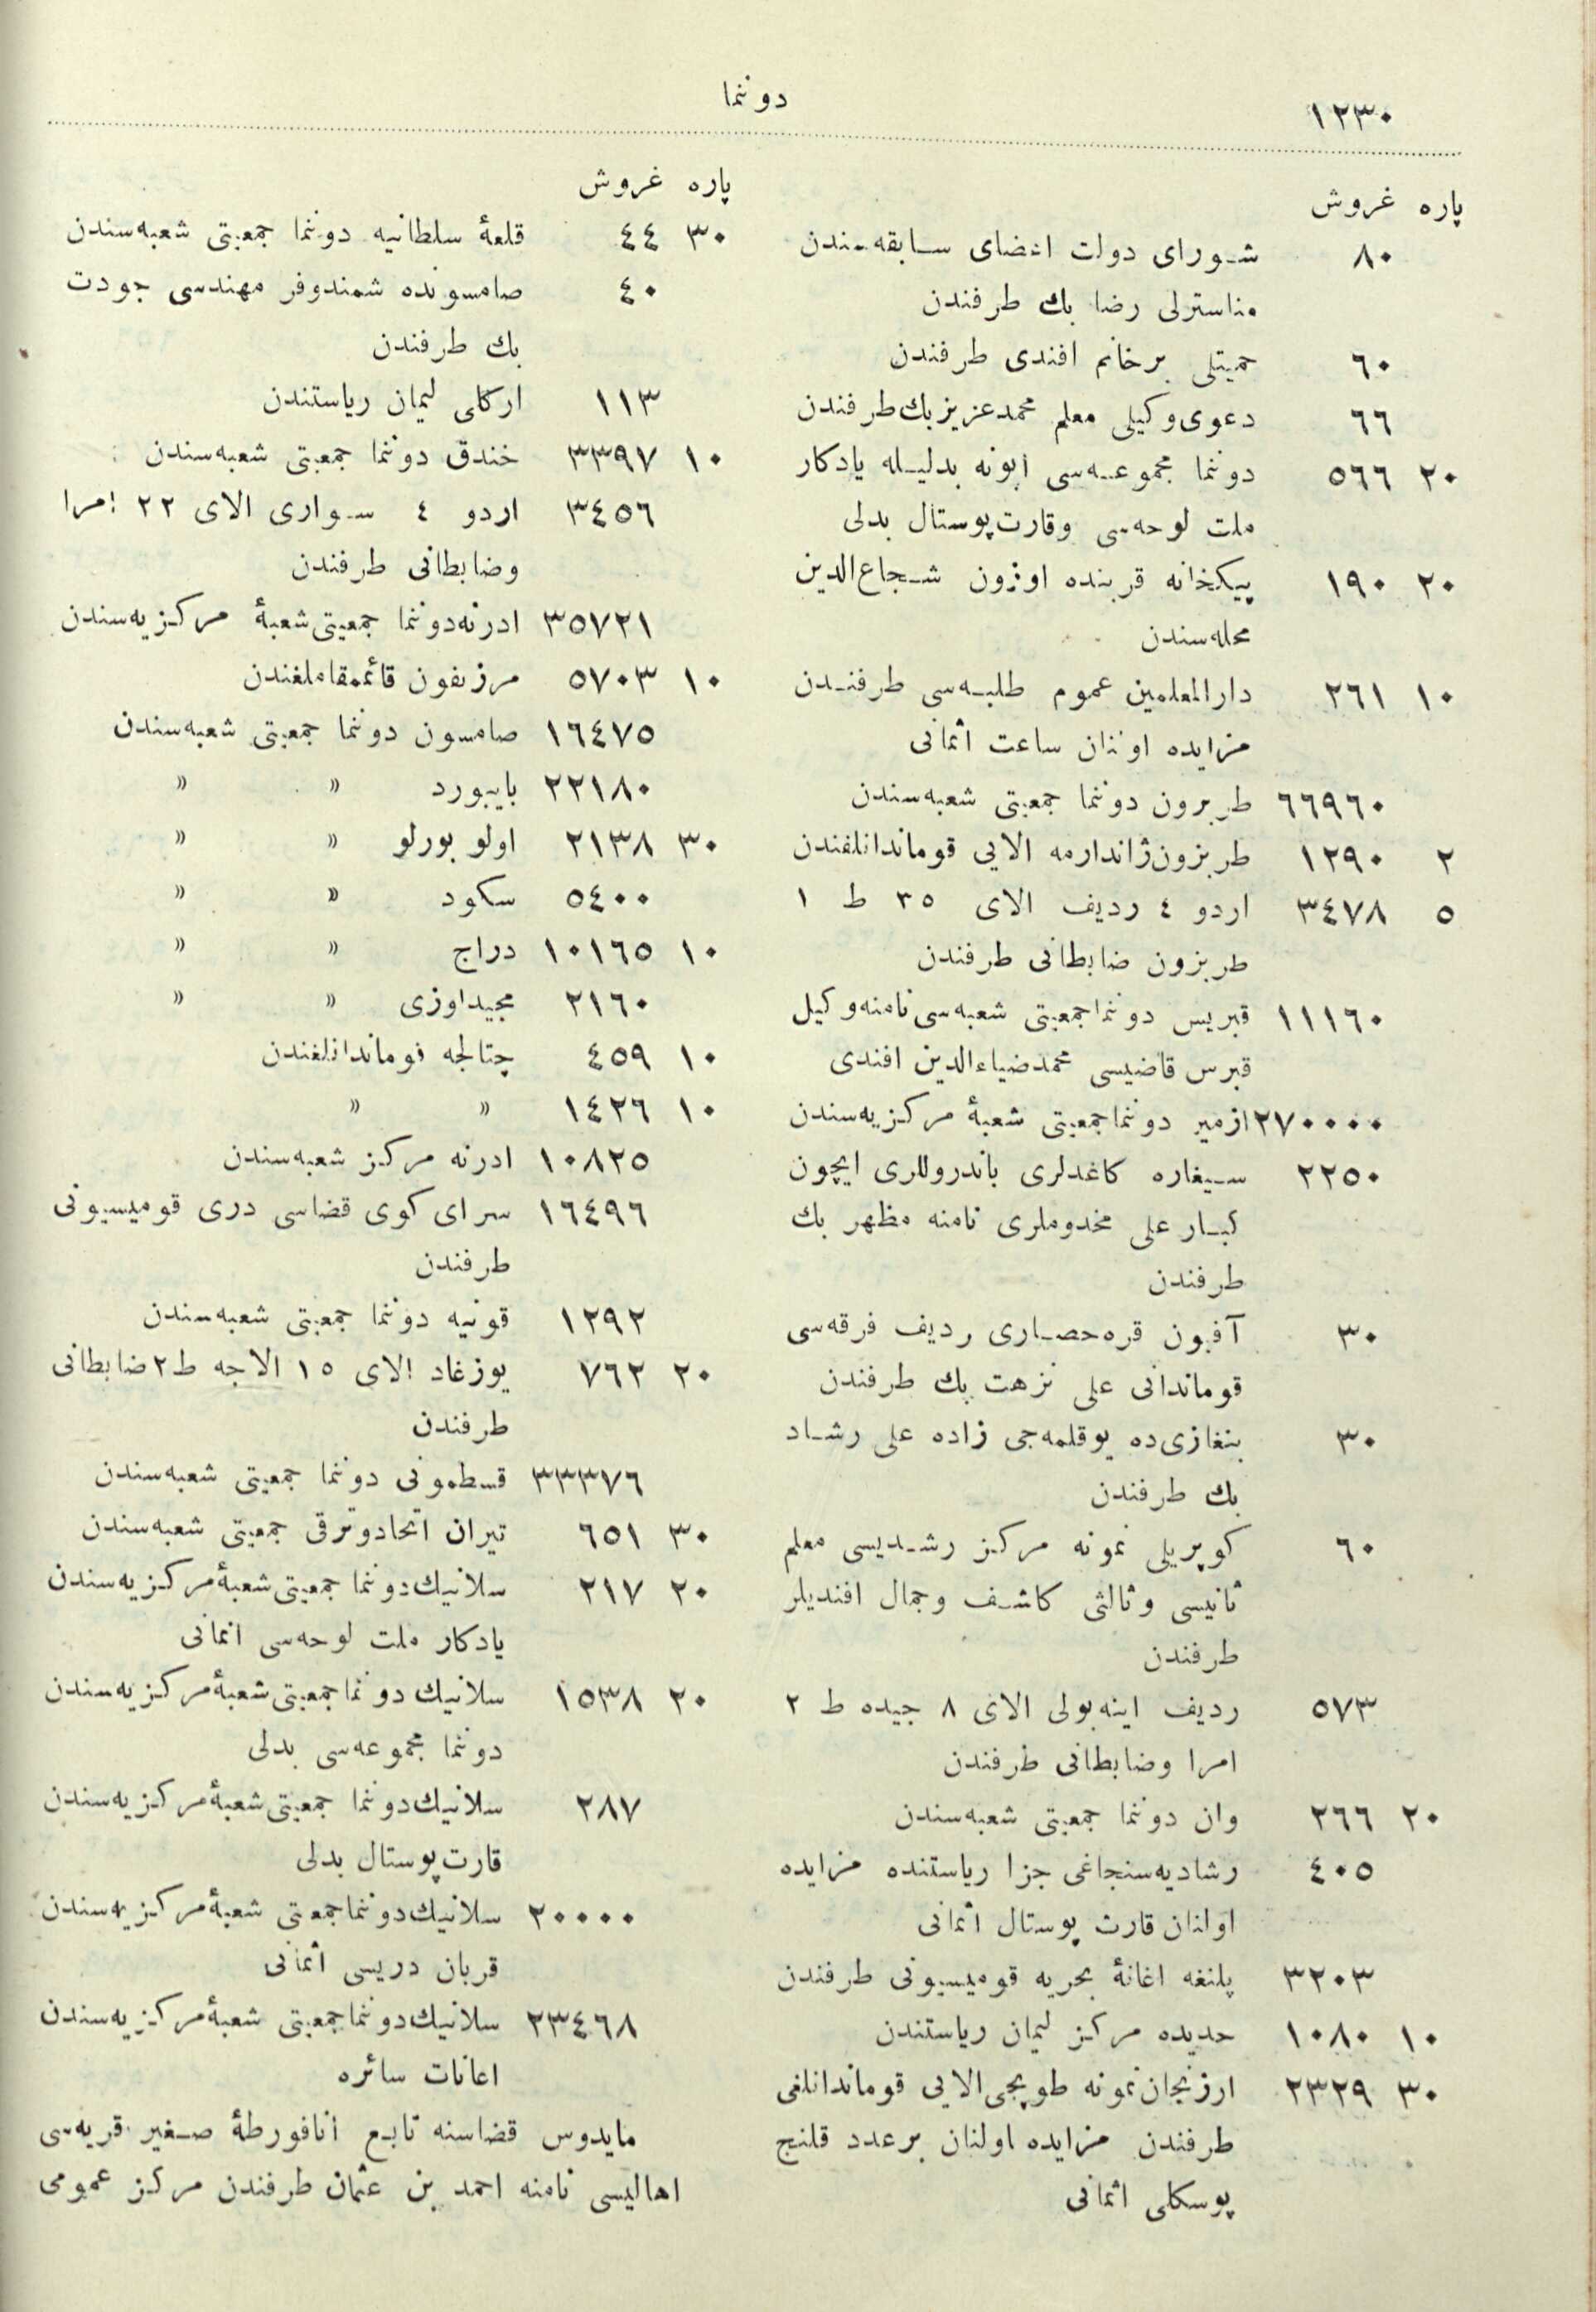 ١٢٣٠
دوننما
پاره غروش
٨٠ شورای دولت اعضای سابقه‌سندن
مناسترلی رضا بك طرفندن
٦٠ حمیتلی برخانم افندی طرفندن
٦٦ دعوی وکیلی معلم محمد عزیز بك طرفندن
٢٠ ٥٦٦ دوننما مجموعه‌سی آبونه بدلیله یادکار
ملت لوحه‌سی وقارت‌پوستال بدلی
٢٠ ١٩٠ پیکخانه قربنده اوزون شجاع‌الدین
محله‌سندن
١٠ ٢٦١ دارالمعلمین عموم طلبه‌سی طرفندن
مزایده اولنان ساعت اثمانی
٦٦٩٦٠ طربزون دوننما جمعیتی شعبه‌سندن
٢ ١٢٩٠ طربزون ژاندارمه الایی قوماندانلغندن
٥ ٣٤٧٨ اردو ٤ ردیف الای ٣٥ ط ١
طربزون ضابطانی طرفندن
١١١٦٠ قبریس دوننما جمعیتی شعبه‌سی نامنه وکیل
قبرس قاضیسی محمد ضیاءالدین افندی
٢٧٠٠٠٠ ازمیر دوننما جمعیتی شعبهٔ مرکزیه‌سندن
٢٢٥٠ سیغاره کاغدلری باندروللری ایچون
کبار علی مخدوملری نامنه مظهر بك
طرفندن
٣٠ آفیون قره‌حصاری ردیف فرقه‌سی
قوماندانی علی نزهت بك طرفندن
٣٠ بنغازی‌ده یوقلمه‌جی زاده علی رشاد
بك طرفندن
٦٠ کوپریلی نمونه مرکز رشدیسی معلم
ثانیسی وثالثی کاشف وجمال افندیلر
طرفندن
٥٧٣ ردیف اینه‌بولی الای ٨ جیده ط ٢
امرا وضابطانی طرفندن
٢٠ ٢٦٦ وان دوننما جمعیتی شعبه‌سندن
٤٠٥ رشادیه سنجاغی جزا ریاستنده مزایده
اولنان قارت پوستال اثمانی
٣٢٠٣ پلنغه اغانهٔ بحریه قومیسیونی طرفندن
١٠ ١٠٨٠ حدیده مرکز لیمان ریاستندن
٣٠ ٢٣٢٩ ارزنجان نمونه طوپجی الایی قوماندانلغی
طرفندن مزایده اولنان برعدد قلنج
پوسکلی اثمانی
پاره غروش
٣٠ ٤٤ قلعهٔ سلطانیه دوننما جمعیتی شعبه‌سندن
٤٠ صامسونده شمندوفر مهندسی جودت
بك طرفندن
١١٣ ارکلی لیمان ریاستندن
١٠ ٣٣٩٧ خندق دوننما جمعیتی شعبه‌سندن
٣٤٥٦ اردو ٤ سواری الای ٢٢ امرا
وضابطانی طرفندن
٣٥٧٢١ ادرنه دوننما جمعیتی شعبهٔ مرکزیه‌سندن
١٠ ٥٧٠٣ مرزیفون قائممقاملغندن
١٦٤٧٥ صامسون دوننما جمعیتی شعبه‌سندن
٢٢١٨٠ بایبورد » »
٣٠ ٢١٣٨ اولو بورلو » »
٥٤٠٠ سکود » »
١٠ ١٠١٦٥ دراج » »
٢١٦٠ مجیداوزی » »
١٠ ٤٥٩ چتالجه قوماندانلغندن
١٠ ١٤٢٦ » »
١٠٨٢٥ ادرنه مرکز شعبه‌سندن
١٦٤٩٦ سرای کوی قضاسی دری قومیسیونی
طرفندن
١٢٩٢ قونیه دوننما جمعیتی شعبه‌سندن
٢٠ ٧٦٢ یوزغاد الای ١٥ الاجه ط ٢ ضابطانی
طرفندن
٣٣٣٧٦ قسطمونی دوننما جمعیتی شعبه‌سندن
٣٠ ٦٥١ تیران اتحاد وترقی جمعیتی شعبه‌سندن
٢٠ ٢١٧ سلانیك دوننما جمعیتی شعبهٔ مرکزیه‌سندن
یادکار ملت لوحه‌سی اثمانی
٢٠ ١٥٣٨ سلانیك دوننما جمعیتی شعبهٔ مرکزیه‌سندن
دوننما مجموعه‌سی بدلی
٢٨٧ سلانیك دوننما جمعیتی شعبهٔ مرکزیه‌سندن
قارت‌پوستال بدلی
٢٠٠٠٠ سلانیك دوننما جمعیتی شعبهٔ مرکزیه‌سندن
قربان دریسی اثمانی
٢٣٤٦٨ سلانیك دوننما جمعیتی شعبهٔ مرکزیه‌سندن
اعانات سائره
مایدوس قضاسنه تابع أنافورطهٔ صغیر قریه‌سی
اهالیسی نامنه احمد بن عثمان طرفندن مرکز عمومی